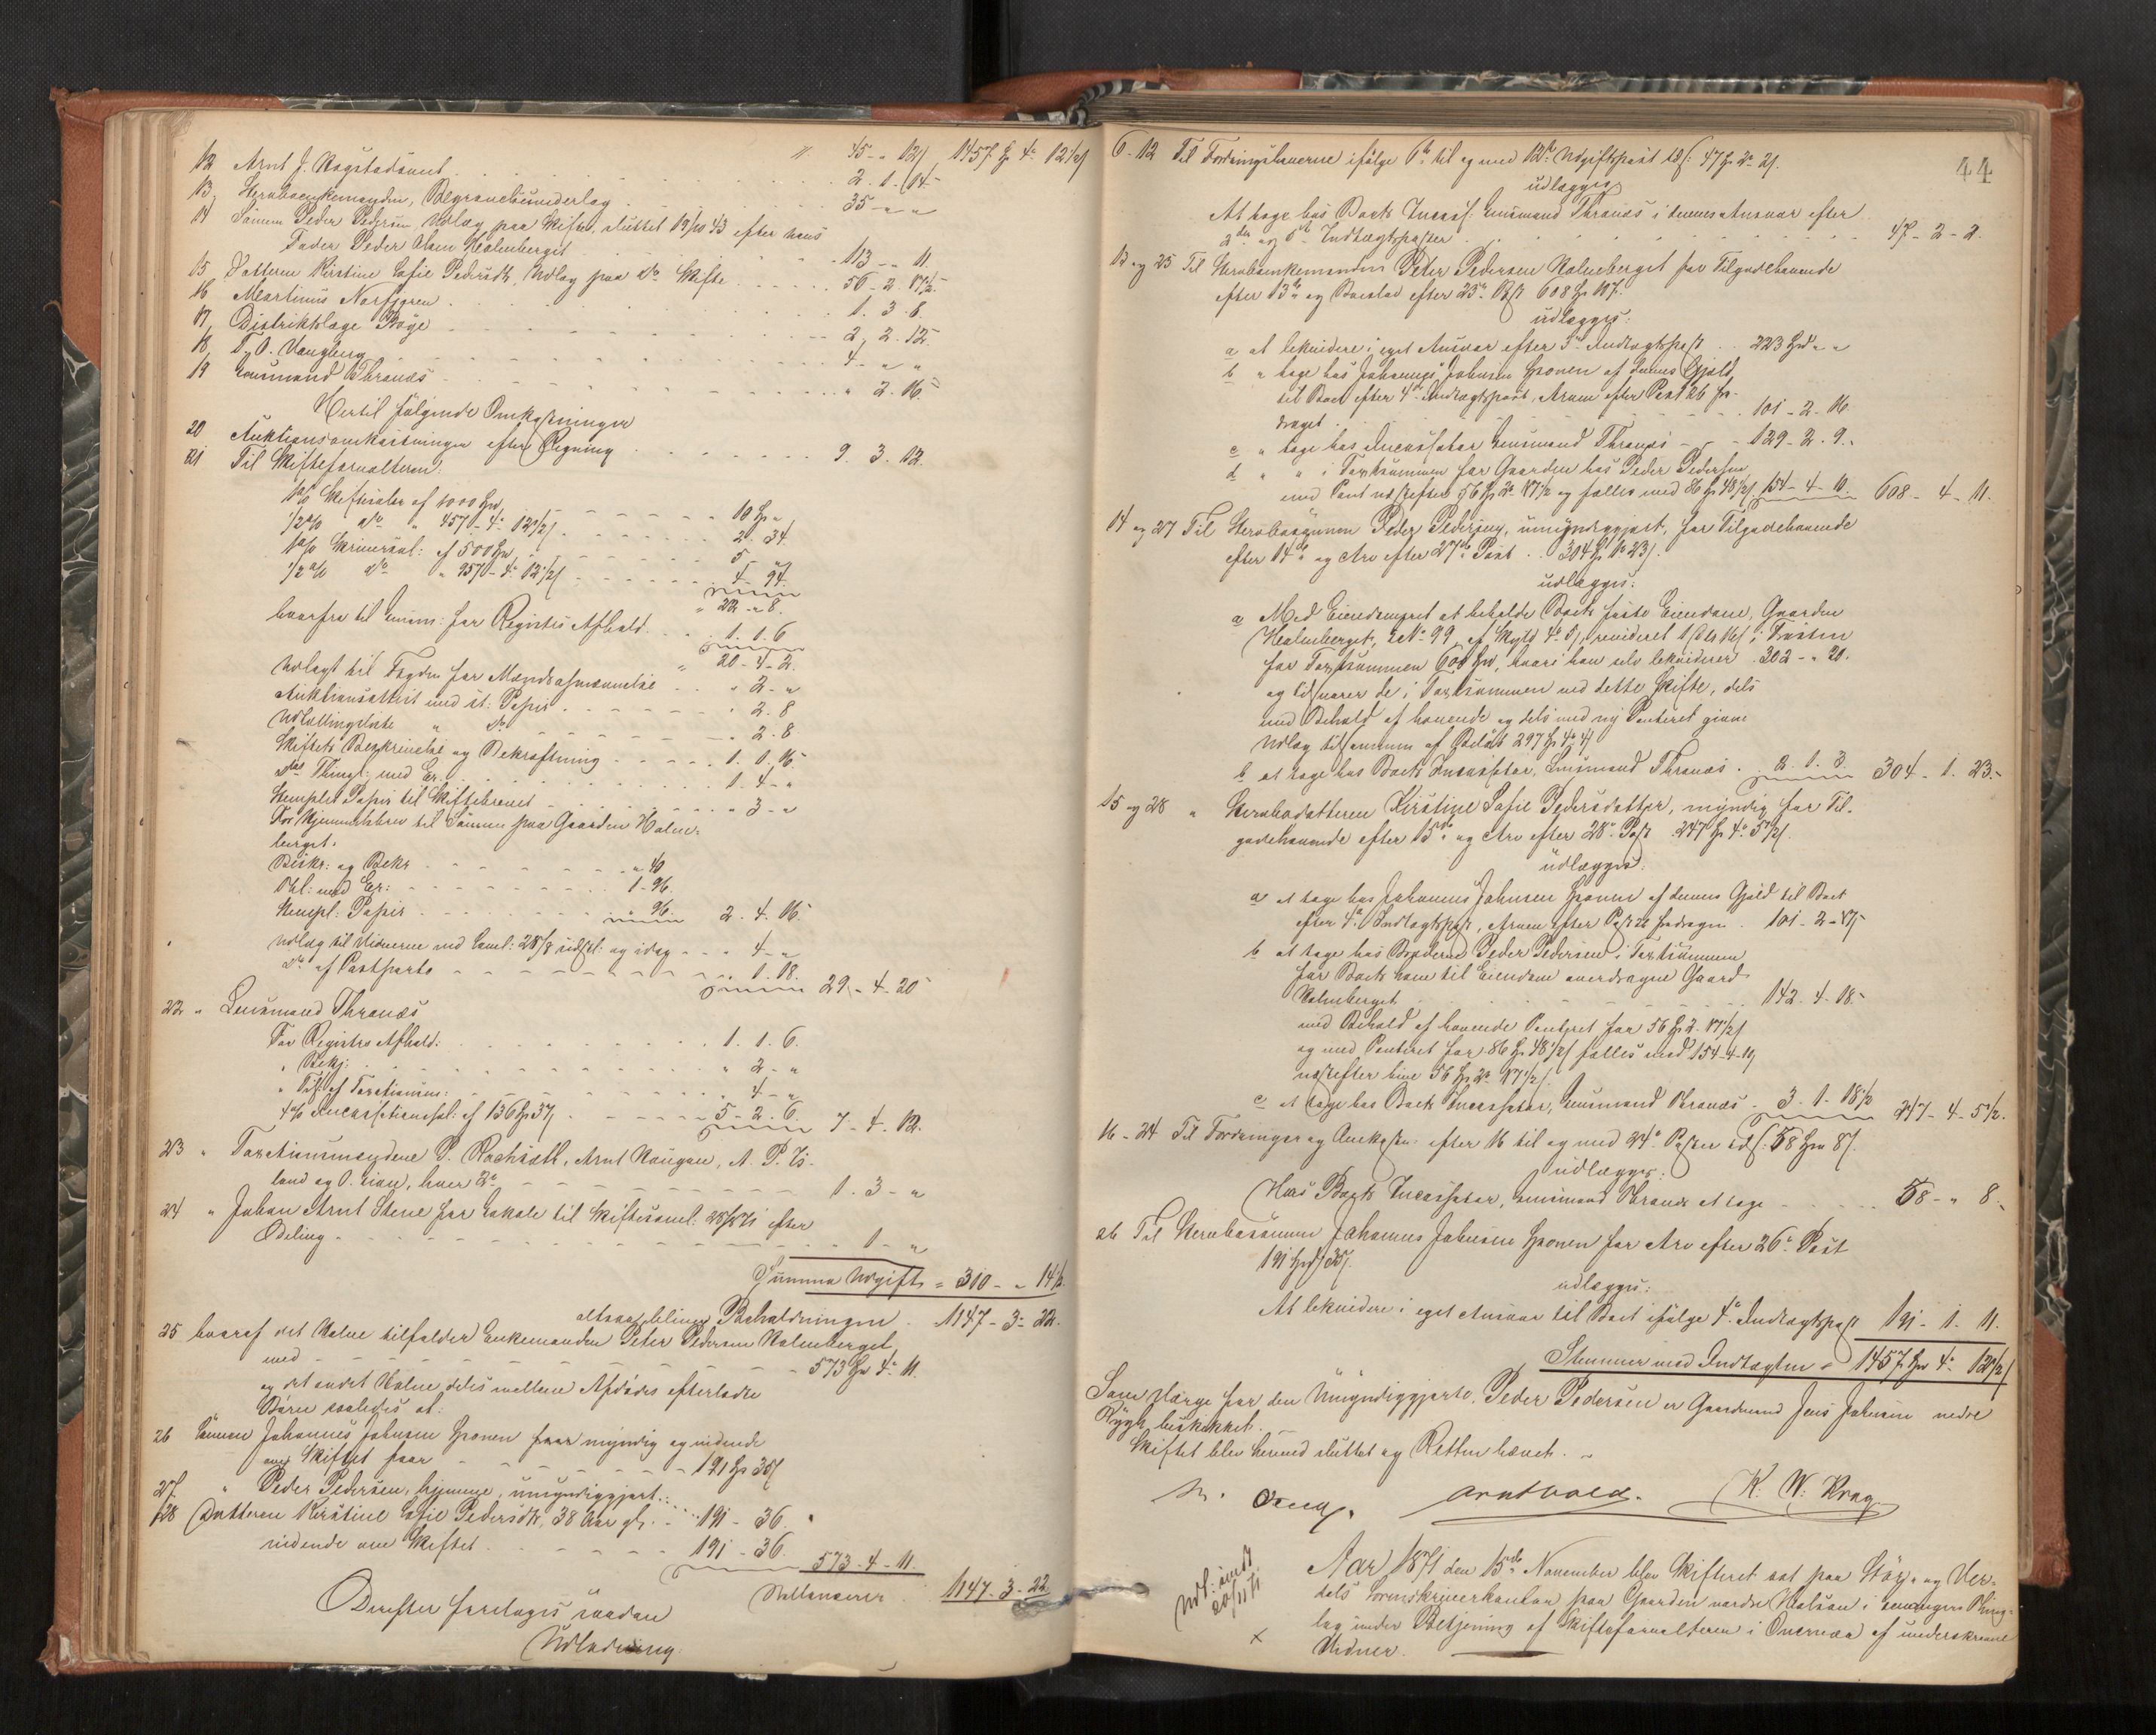 " 45 - " 12 1457 4 12½
12 Arnt J. Rogstadsvedet . . . 2. 1. 14.
13, Sterbo enkemanden, Begravelsesomkostninger . . . 35 - " "
14 Sønnen Peder Pedersen Udlæg paa Skiftet sluttet 19/10 43 efter hans
Fader Peder Olsen Holmberget . . . 113 - " 11.
15 Datteren Kirstine Sofie Pedersdtr, Udlæg paa do Skifte . . . 56 - 2. 17½.
16 Martinus Norfjgren . . . 1. 3. 8.
17, Distriktslæge Krøye . . . 2, 2. 12.
18, T. O. Vangberg . . . 4 - " "
19 Lensmand Thranes . . . " 2. 16.
Hertil følgende Omkostninger
20 Auktionsomkostninger efter Regning . . . 9. 3. 12.
21 Til Skifteforvalteren:
1 % Skiftesaler af 1000 Spd . . . 10 Sp "
½ % do " 457 - 4. 12½ . . . 2. 34
1 % Skriversal: af 500 Spd . . . 5 "
½ % do " 957 - 4. 12½ . . . 4 - 94.
" 22 - " 8.
hvorfra til Lensm: for Registrs Afhold . . . 1. 1. 6
" 20 - 4 - 2.
Udlagt til Fogden for Mændsopnævnelse . . . " 2 - "
Auktionsattest med st: Papir . . . " 2. 8
Udlodningsliste " do . . . " 2. 8
Skiftets Beskrivelse og Bekræftning . . . 1. 1. 16.
dets Thingl: med Er. . . . 1. 4 - "
Stemplet Papir til Skiftebrevet . . . " 3 - "
For Hjemmelsbrev til Sønnen paa Gaarden Holm-
berget.
Beskr: og Bekr . . . " 40
Thl: med Er: . . . 1 - 96.
Stempl: Papir . . . " 96. 2. 4. 16.
Udlæg til Vidnerne ved Saml: 28/8 udsat: og idag . . . 4 - "
do af Postporto . . . 1. 18. 29 - 4 - 20
22 " Lensmand Thranes
For Registrs Afhold: . . . 1. 1. 6.
" Bekj: . . . " 2 - "
" Tils: af Taxationen: . . . " 4 - "
4 % Incassationssal: af 136 Sp 37 . . . 5 - 2. 6. 7 - 4. 12.
23 " Taxationsmændene P. Rosvold, Arnt Haugan, A. P. Is-
land og O. Lian, hver 2 . . . 1. 3 - "
24 " Johan Arnt Stene for Lokale til Skiftesaml: 28/8 71 efter
Ødeling . . . 1 - "
Summa Udgift = 310 - " 14½
altsaa bliver Beholdningen . 1147 - 3 - 22.
25 hvoraf det Halve tilfalder Enkemanden Peter Pedersen Holmberget
med . . . 573 Spd 4. 11.
og det andet Halve deles mellem Afdødes efterladte
Børn saaledes at:
26 Sønnen Johannes Johnsen Gronen faar myndig og vidende
om Skiftet faar . . . 191 Sp 35
27. " Peder Pedersen, hjemme, umyndiggjort . . . 191 - 36.
28 Datteren Kirstine Sofie Pedersdtr, 38 Aar gl.
vidende om Skiftet . . . 191 - 36. 573 - 4 - 11.
Ballancerer 1147 - 3 - 22
Derefter foretoges saadan
Udlodning.
44
6 - 12 Til Fordringshaverne ifølge 6te til og med 12te Udgiftspost tils: 47 Sp 2 2.
udlægges
At tage hos Boets Incass: Lensmand Thranes i dennes Ansvar efter
2den og 5te Indtægtsposter . . . 47 - 2 - 2.
13 og 25 Til Sterboenkemanden Peter Pedersen Holmberget for Tilgodehavende
efter 13de og Boeslod efter 25de Post 608 Sp 107.
udlægges:
a at likvidere i eget Ansvar efter 3de Indtægtspost . . 223 Spd " "
b " tage hos Johannes Johnsen Gronen af dennes Gjæld
til Boet efter 4de Indtægtspost, Arven efter Post 26 fra-
draget . . . 101 - 2 - 16.
c " tage hos Incassator Lensmand Thranes - " - 129 - 2. 9.
d " " i Taxtsummen for Gaarden hos Peder Pedersen
med Pant næstefter 56 Sp 2 17½ og fælles med 86 Sp 48½ 154 - 4 - 10. 608 - 4 - 11.
14 og 27 Til Sterbosønnen Peder Pedersen, umyndiggjort, for Tilgodehavende
efter 14de og Arv efter 27de Post . . 304 Sp 1 23.
udlægges:
a Med Eiendomsret at beholde Boets faste Eiendom, Gaarden
Holmberget, Lno 99, af Skyld 4 5, revideret 1 16 i Frosten
for Taxtsummen 600 Spd, hvori han selv likviderer . 302 - " 20.
og tilsvarer de i Taxtsummen ved dette Skifte, dels
med Behold af havende og dels med ny Panteret givne
Udlæg tilsammen af Beløb 297 Sp 4 4
b at tage hos Boets Incassator, Lensmand Thranes . 2. 1. 3. 304 - 1. 23.
15 og 28 " Sterbodatteren Kirstine Sofie Pedersdatter, myndig, for Til-
godehavende efter 15de og Arv efter 28de Post . 247 Sp 4 5½.
udlægges:
a at tage hos Johannes Johnsen Gronen af dennes Gjæld til Boet
efter 4de Indtægtspost, Arven efter Post 26 fradragen . 101 - 2 - 17
b at tage hos Broderen Peder Pedersen i Taxtsummen
for Boets ham til Eiendom overdragne Gaard
Holmberget . . . 142. 4. 18.
med Behold af havende Panteret for 56 Sp 2. 17½
og med Panteret for 86 Sp 48½ fælles med 154 - 4 - 10
næstefter hine 56 Sp 2 17½.
c at tage hos Boets Incassator, Lensmand Thranes - 3. 1. 18½ 247 - 4 - 5½.
16 - 24 Til Fordringer og Omkostn: efter 16 til og med 24de Poster tils: 58 Spd 8.
udlægges:
Hos Boets Incassator, Lensmand Thranes at tage . . . 58 - " 8.
26 Til Sterbosønnen Johannes Johnsen Gronen for Arv efter 26de Post
191 Spd 35.
udlægges:
At likvidere i eget Ansvar til Boet ifølge 4de Indtægtspost 191 - 1. 11.
Stemmer med Indtægten = 1457 Spd 4 12½
Som Værge for den Umyndiggjorte, Peder Pedersen er Gaardmand Jens Johnsen nedre
Rygg beskikket.
Skiftet blev hermed sluttet og Retten hævet. -
K. W. Krag
Udl: sendt
20/11 71
Aar 1871 den 15de November blev Skifteret sat paa Stør- og Vær-
dals Sorenskriverkontor paa Gaarden nordre Halsan i Levangers Thing-
lag under Betjening af Skifteforvalteren i Overvær af underskrevne
x Vidner.